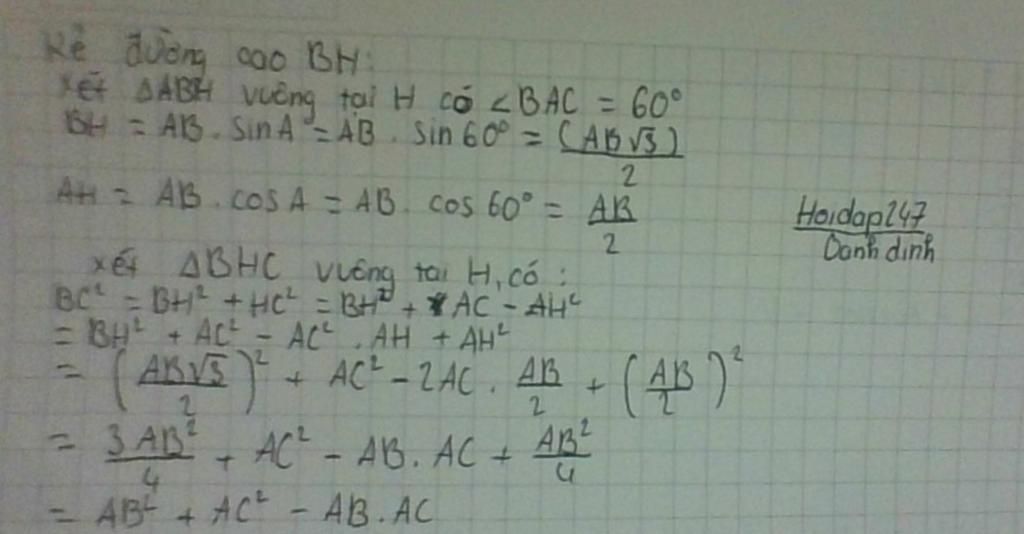 Kẻ đường cao BH:
Xét ΔABH vuông tại H có ∠BAC = 60°
BH = AB. sinA = AB. sin60° = (AB√3)/2
AH = AB. cosA = AB. cos60° = AB/2
Hoidap247
Danh dinh
xét ΔBHC vuông tại H, có:
BC² = BH² + HC² = BH² + AC - AH²
= BH² + AC² - AC². AH + AH²
= (AB√3/2)² + AC² - 2AC. AB/2 + (AB/2)²
= 3AB²/4 + AC² - AB. AC + AB²/4
= AB² + AC² - AB.AC